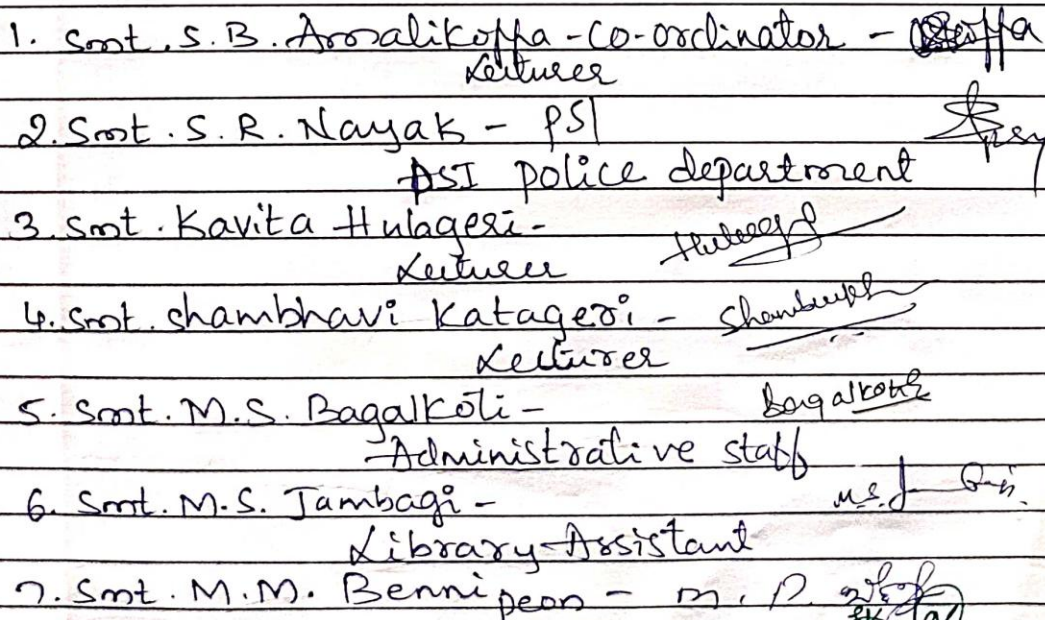 1. Smt. S. B. Arasalikoppa - Co-ordinator -
Lecturer
2. Smt. S. R. Nayak - PSI
PSI police department
3. Smt. Kavita Hulageri -
Lecturer
4. Smt. shambhavi Katageri -
Lecturer
5. Smt. M.S. Bagalkoti - Bagalkoti
Administrative staff
6. Smt. M.S. Jambagi - M.S.
Library Assistant
7. Smt. M.M. Benni peon - m.